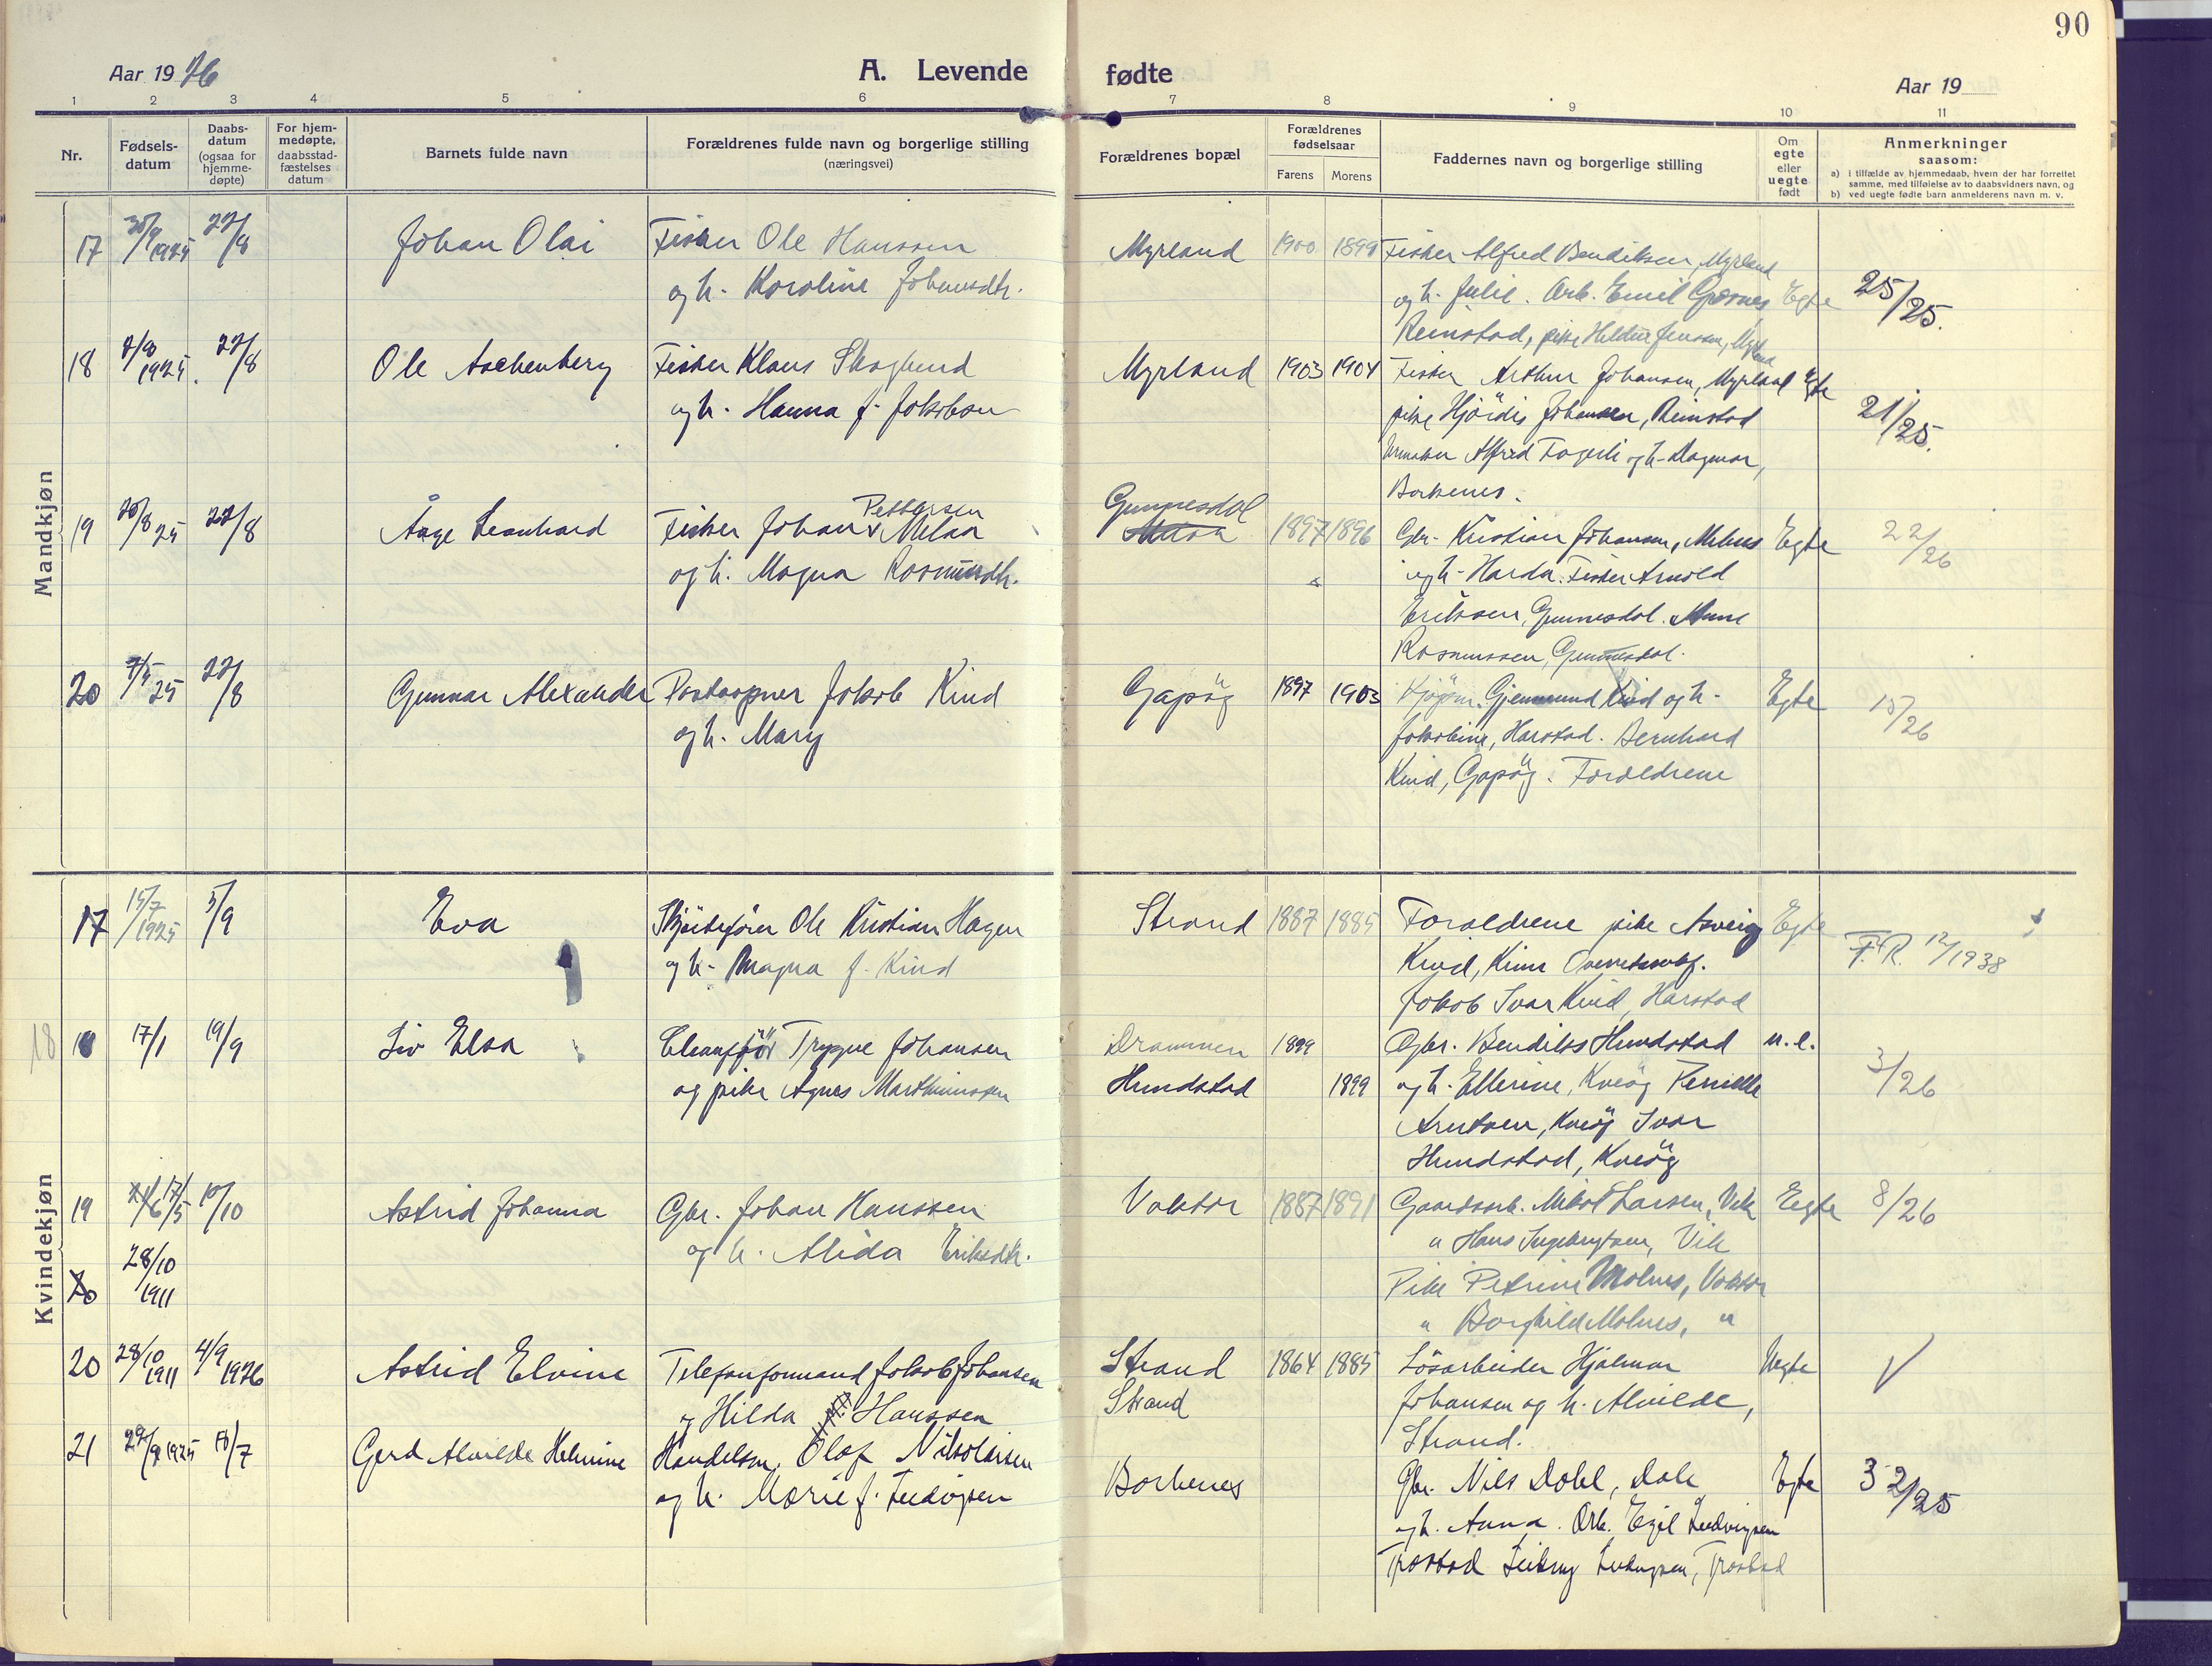 90
Aar 1926
A. Levende
fødte
Aar 19
1 2 3 4 5 6 7 8 9 10 11
Nr.
Fødsels-
datum
Daabs-
datum
(ogsaa for
hjemme-
døpte)
For hjem-
medøpte,
daabsstad-
fæstelses
datum
Barnets fulde navn
Forældrenes fulde navn og borgerlige stilling
(næringsvei)
Forældrenes bopæl
Forældrenes
fødselsaar
Farens
Morens
Faddernes navn og borgerlige stilling
Om
egte
eller
uegte
født
Anmerkninger
saasom:
a) i tilfælde av hjemmedaab, hvem der har forrettet
samme, med tilføielse av to daabsvidners navn, og
b) ved uegte fødte barn anmelderens navn m. v.
Mandkjøn
17 1925 22/8 Johan Olai Fisker Ole Hanssen Myrland 1900 1899 Fisker Alfred Bendiksen, Myrland
og h. Karoline Johansdtr. og h. Julie. Arb. Emil Egte 25/25.
Reinstad, pike Jensen, Myrland
18 1925. 22/8 Ole Aschenberg Fisker Klaus Skoglund Myrland 1903 1904 Fisker Arthur Johansen, Myrland Egte
og h. Hanna f. Jakobsen pike Hjördis Johansen, Reinstad 21/25.
Alfred Fagerli og h. Dagmar,
Borkenes.
19 20/8 25 22/8 Åage Leonhard Fisker Johan Pettersen Melaa Gunnesdal 1897 1896 Gbr. Kristian Johansen, Melnes Egte 22/26
og h. Magna Rasmusdtr. og h. Harda. Fisker Arnold
Eriksen, Gunnesdal. Anne
Rasmussen, Gunnesdal.
20 25 22/8 Gunnar Alexander Postaapner Jakob Kind Gapöy 1897 1903 Kjöpm. Gjermund Kind og h. Egte 15/26
og h. Mary Jakobine, Harstad. Bernhard
Kind, Gapöy. Forældrene
Kvindekjøn
17 15/7 1925 5/9 Eva Ole Kristian Hagen Strand 1887 1885 Forældrene pike Egte
og h. Magna f. Kind Kind, F.R. 12/1938
Jakob Ivar Kind, Harstad
18 17/1 19/9 Liv Elsa Trygve Johansen Drammen 1899 Gbr. Bendiks Hundstad u.e.
og pike Agnes Marthinussen Hundstad 1899 og h. Ellerine, Kveöy Pernille 3/26
Arntsen, Kveöy Ivar
Hundstad, Kveöy
19 17/5 10/10 Astrid Johanna Gbr. Johan Hanssen Voktor 1887 1891 Gaardsarb. Larsen, Vik Egte 8/26
og h. Alida Eriksdtr. " Hans Ingebrigtsen, Vik
20 28/10 1911 Pike Petrine Molnes, Voktor
" Borghild Molnes, "
20 28/10 1911 4/9 1926 Astrid Elvine Telefonformand Jakob Johansen Strand 1864 1885 Lösarbeider Hjalmar Uegte
og Hilda Hanssen Strand Johansen og h. Alvilde,
Strand.
21 1925 18/7 Gerd Alvilde Helmine Handelsm. Olaf Nikolaisen Borkenes Gbr. Nils Dahl, Dale Egte 32/25
og h. Marie f. Ludvigsen og h. Anna. Arb. Egil Ludvigsen
Trastad Ludvigsen, Trastad